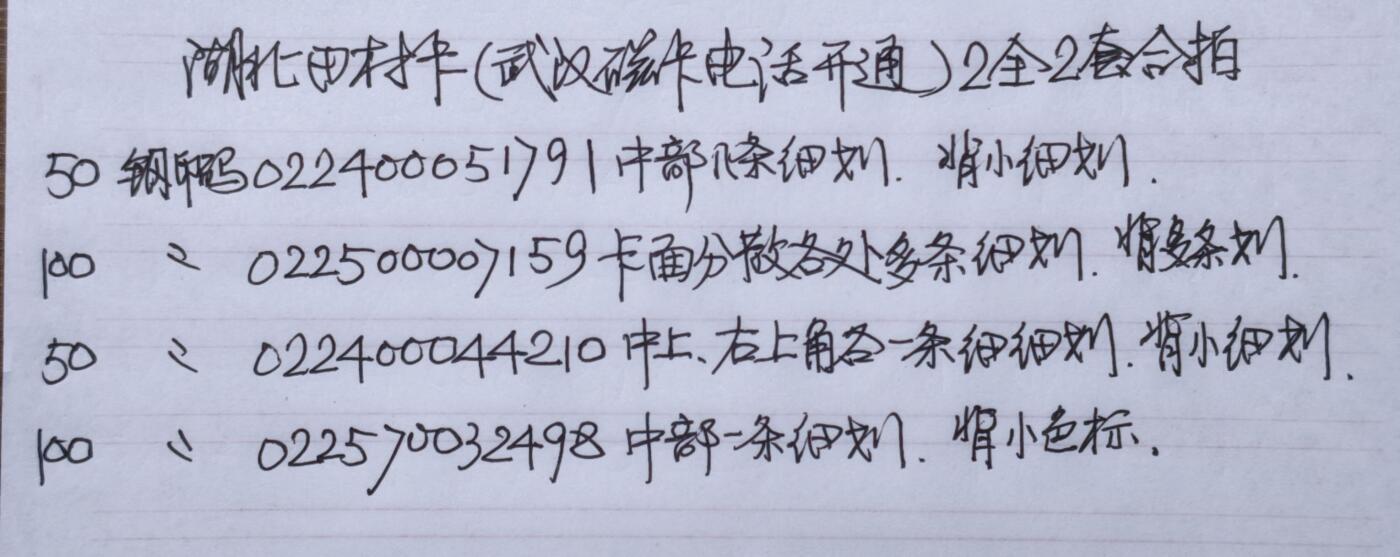 湖北田村卡(武汉磁卡电话开通)2全2套合拍
50 钢印码022400051791中部1条细划. 背小细划.
100 〃 022500007159卡面分散各处多条细划. 背多条划.
50 〃 022400044210中上、右上角各一条细细划. 背小细划.
100 〃 022570032498中部一条细划. 背小色标.